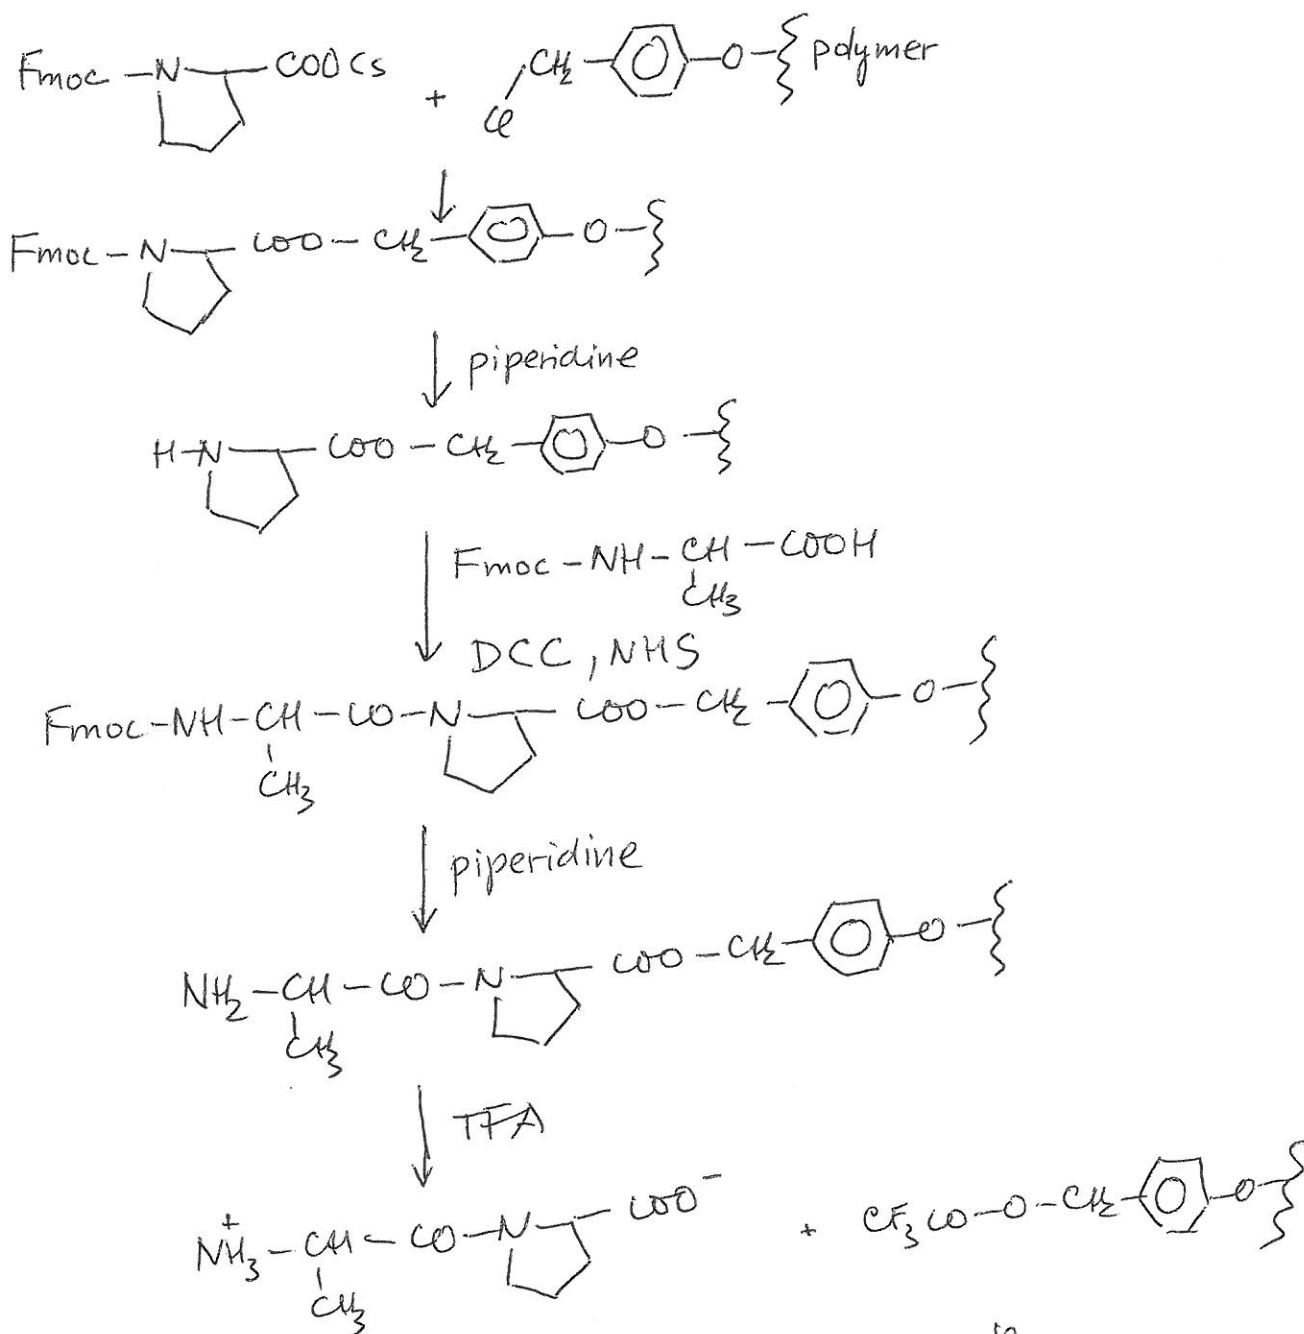 Fmoc–N COOCs + CH2 Cl –O– polymer
Fmoc–N COO–CH2 –O–
piperidine
H–N COO–CH2 –O–
Fmoc–NH–CH–COOH
CH3
DCC, NHS
Fmoc–NH–CH–CO–N COO–CH2 –O–
CH3
piperidine
NH2–CH–CO–N COO–CH2 –O–
CH3
TFA
+NH3–CH–CO–N COO− + CF3CO–O–CH2 –O–
CH3